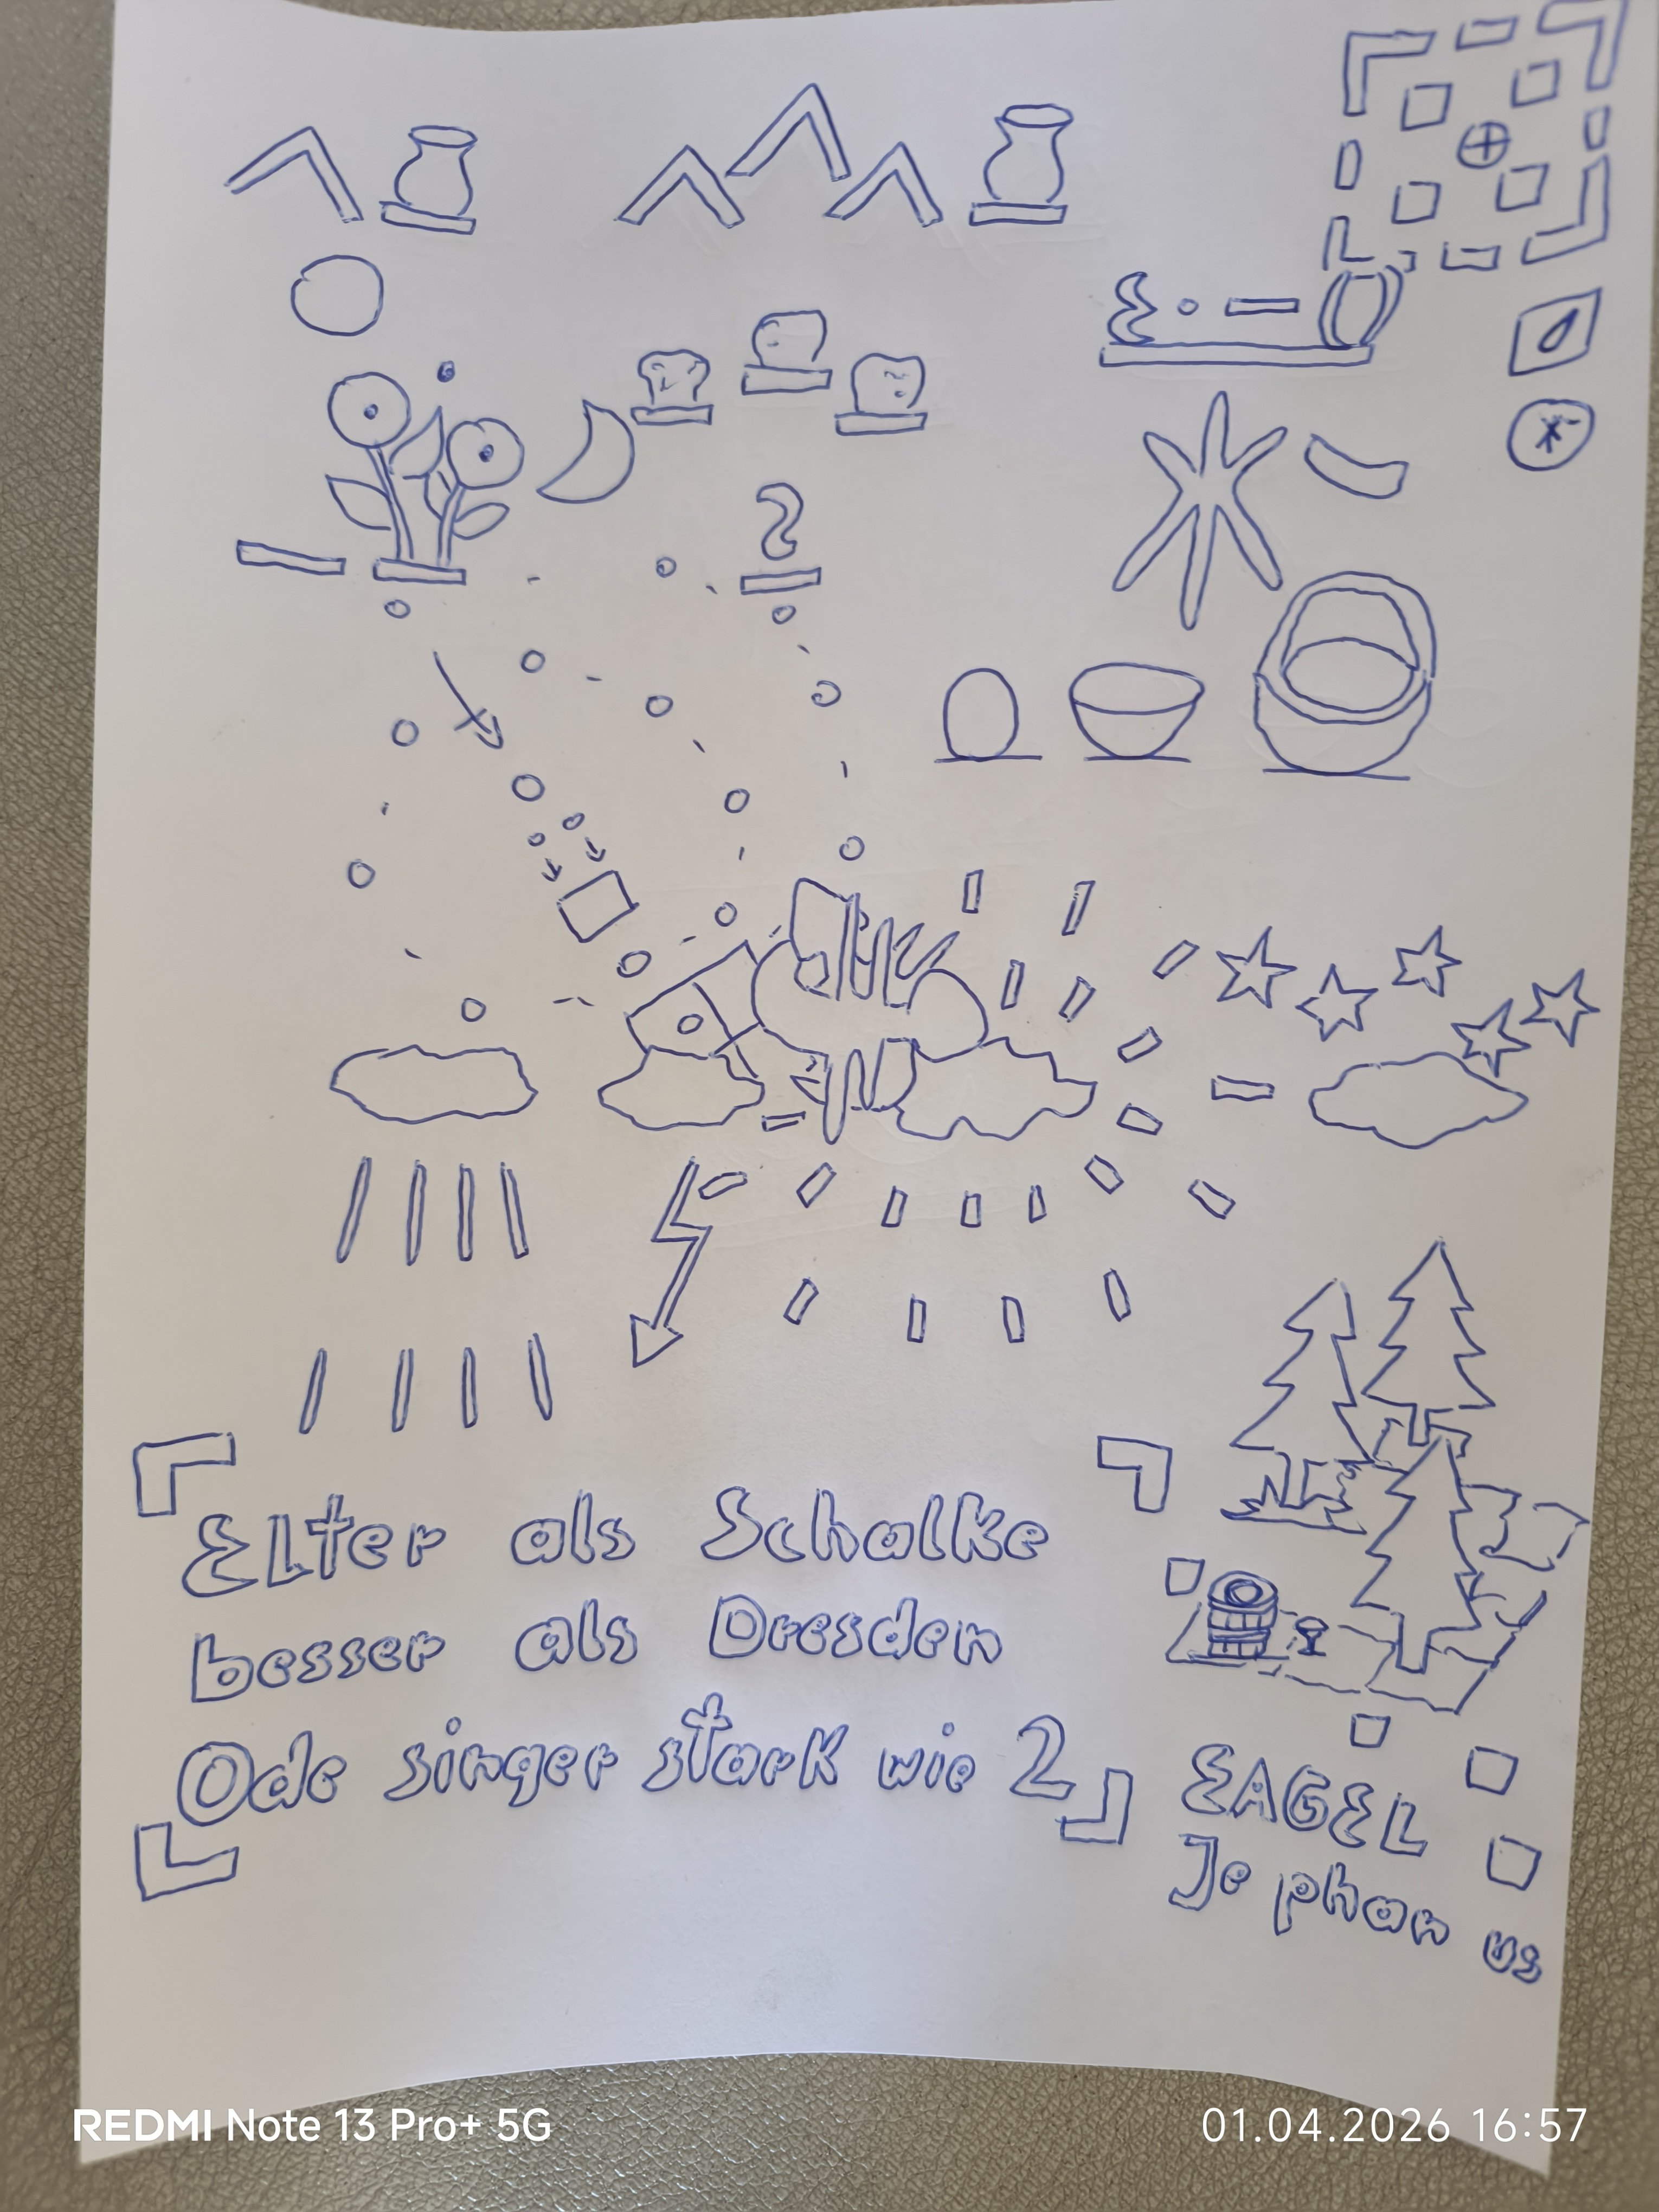 Elter als Schalke
besser als Dresden
Ode singer stark wie 2
EAGEL
Je phan us
REDMI Note 13 Pro+ 5G
01.04.2026 16:57